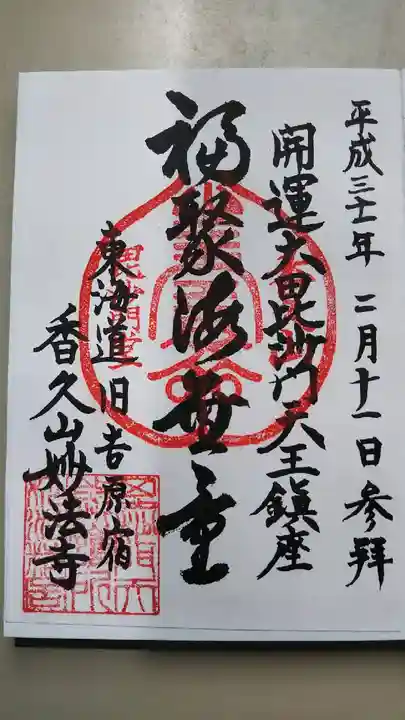 平成三十一年 二月十一日参拝
開運大毘沙門天王鎮座
福聚海無量
東海道旧吉原宿
香久山妙法寺
毘沙門堂